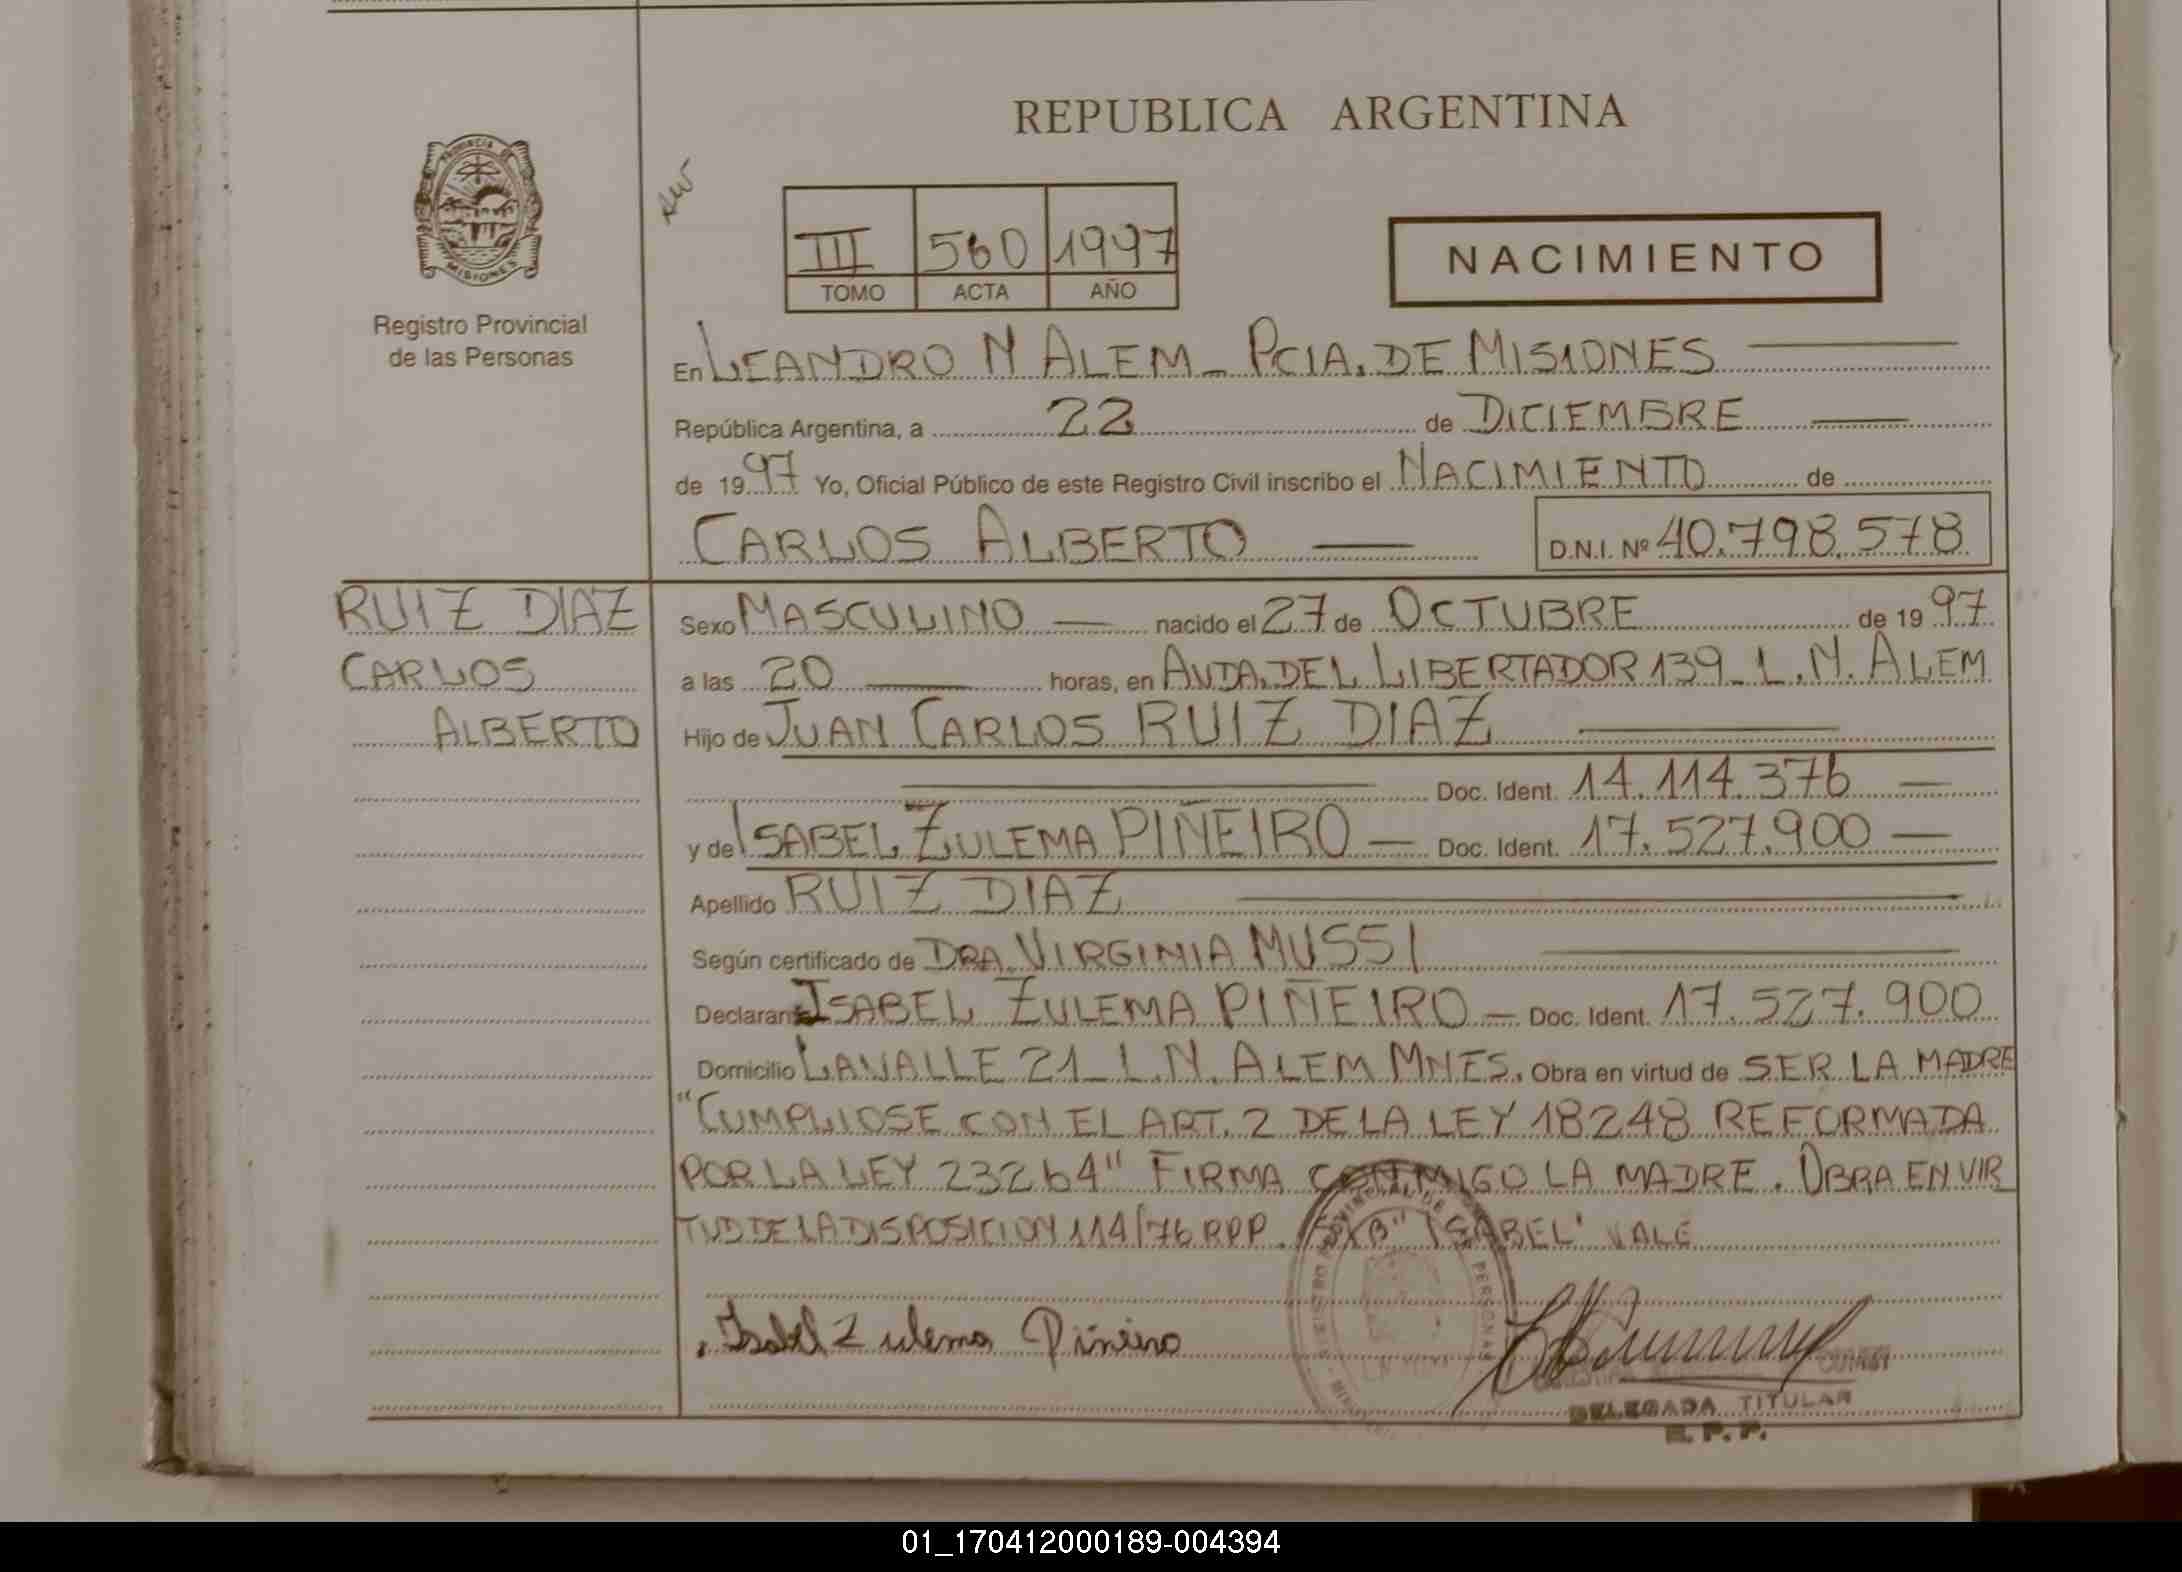 REPUBLICA ARGENTINA
PROVINCIA DE
MISIONES
III 560 1997
TOMO ACTA AÑO
NACIMIENTO
Registro Provincial
de las Personas
En LEANDRO N ALEM - PCIA. DE MISIONES
República Argentina, a 22 de DICIEMBRE
de 1997 Yo, Oficial Público de este Registro Civil inscribo el NACIMIENTO de
CARLOS ALBERTO D.N.I. Nº 40.798.578
RUIZ DIAZ
CARLOS
ALBERTO
Sexo MASCULINO nacido el 27 de OCTUBRE de 1997
a las 20 horas, en AVDA. DEL LIBERTADOR 139 - L. N. ALEM
Hijo de JUAN CARLOS RUIZ DIAZ
Doc. Ident. 14.114.376
y de ISABEL ZULEMA PIÑEIRO Doc. Ident. 17.527.900
Apellido RUIZ DIAZ
Según certificado de DRA. VIRGINIA MUSSI
Declarante ISABEL ZULEMA PIÑEIRO - Doc. Ident. 17.527.900
Domicilio LAVALLE 21 - L. N. ALEM MNES. Obra en virtud de SER LA MADRE
"CUMPLIOSE CON EL ART. 2 DE LA LEY 18248 REFORMADA
POR LA LEY 23264" FIRMA CONMIGO LA MADRE. OBRA EN VIR
TUD DE LA DISPOSICION 114/76 RPP. "ISABEL" VALE
Isabel Zulema Piñeiro
DELEGADA TITULAR
R. P. P.
01_170412000189-004394